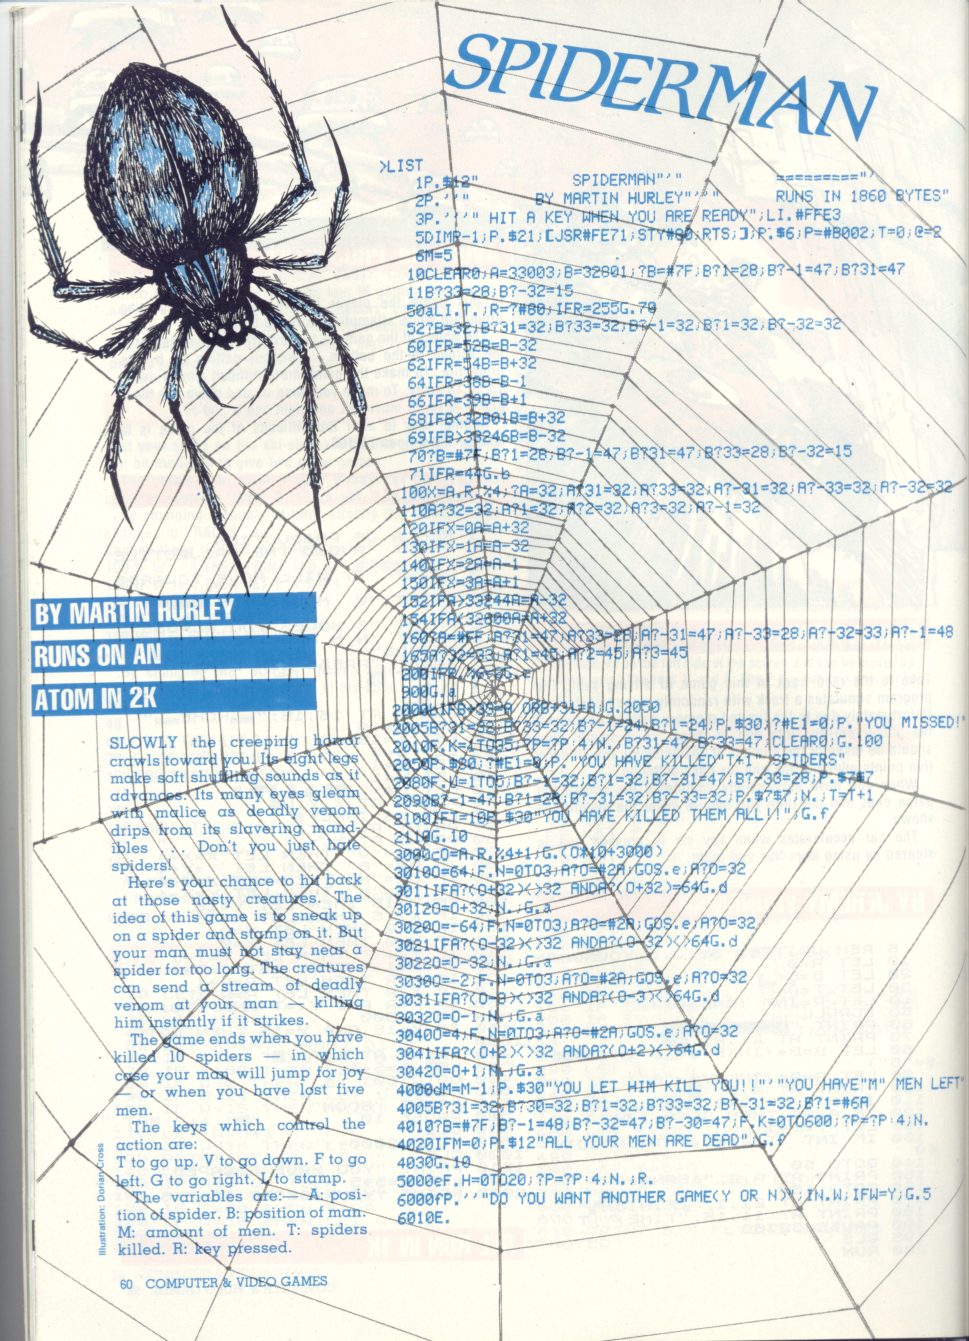 SPIDERMAN
>LIST
1P.$12" SPIDERMAN"'" ========="'
2P.''" BY MARTIN HURLEY"''" RUNS IN 1860 BYTES"
3P.'''" HIT A KEY WHEN YOU ARE READY";LI.#FFE3
5DIMR-1;P.$21;[JSR#FE71;STY#80;RTS;];P.$6;P=#B002;T=0;@=2
6M=5
10CLEAR0;A=33003;B=32801;?B=#7F;B?1=28;B?-1=47;B?31=47
11B?33=28;B?-32=15
50aLI.T.;R=?#80;IFR=255G.70
52?B=32;B?31=32;B?33=32;B?-1=32;B?1=32;B?-32=32
60IFR=52B=B-32
62IFR=54B=B+32
64IFR=38B=B-1
66IFR=39B=B+1
68IFB<32801B=B+32
69IFB>33246B=B-32
70?B=#7F;B?1=28;B?-1=47;B?31=47;B?33=28;B?-32=15
71IFR=44G.b
100X=A.R.%4;?A=32;A?31=32;A?33=32;A?-31=32;A?-33=32;A?-32=32
110A?32=32;A?1=32;A?2=32;A?3=32;A?-1=32
120IFX=0A=A+32
130IFX=1A=A-32
140IFX=2A=A-1
150IFX=3A=A+1
152IFA>33244A=A-32
154IFA<32800A=A+32
160?A=#FF;A?31=47;A?33=28;A?-31=47;A?-33=28;A?-32=33;A?-1=48
165A?32=33;A?1=45;A?2=45;A?3=45
900G.a
2005B?31=32;B?33=32;B?-1=24;B?1=24;P.$30;?#E1=0;P."YOU MISSED!"
2010F.K=1TO35;?P=?P:4;N.;B?31=47;B?33=47;CLEAR0;G.100
2050P.$30;?#E1=0;P."YOU HAVE KILLED"T+1" SPIDERS"
2080F.U=1TO5;B?-1=32;B?1=32;B?-31=47;B?-33=28;P.$7$7
2090B?-1=47;B?1=28;B?-31=32;B?-33=32;P.$7$7;N.;T=T+1
2100IFT=10P.$30"YOU HAVE KILLED THEM ALL!!";G.f
2110G.10
3000cO=A.R.%4+1;G.(O*10+3000)
3010O=64;F.N=0TO3;A?O=#2A;GOS.e;A?O=32
3011IFA?(O+32)<>32 ANDA?(O+32)=64G.d
3012O=O+32;N.;G.a
3020O=-64;F.N=0TO3;A?O=#2A;GOS.e;A?O=32
3021IFA?(O-32)<>32 ANDA?(O-32)<>64G.d
3022O=O-32;N.;G.a
3030O=-2;F.N=0TO3;A?O=#2A;GOS.e;A?O=32
3031IFA?(O-3)<>32 ANDA?(O-3)<>64G.d
3032O=O-1;N.;G.a
3040O=4;F.N=0TO3;A?O=#2A;GOS.e;A?O=32
3041IFA?(O+2)<>32 ANDA?(O+2)<>64G.d
3042O=O+1;N.;G.a
4000dM=M-1;P.$30"YOU LET HIM KILL YOU!!"'"YOU HAVE"M" MEN LEFT"
4005B?31=32;B?30=32;B?1=32;B?33=32;B?-31=32;B?1=#6A
4010?B=#7F;B?-1=48;B?-32=47;B?-30=47;F.K=0TO600;?P=?P:4;N.
4020IFM=0;P.$12"ALL YOUR MEN ARE DEAD";G.f
4030G.10
5000eF.H=0TO20;?P=?P:4;N.;R.
6000fP.''"DO YOU WANT ANOTHER GAME(Y OR N)";IN.W;IFW=Y;G.5
6010E.
BY MARTIN HURLEY
RUNS ON AN
ATOM IN 2K
SLOWLY the creeping horror
crawls toward you. Its eight legs
make soft shuffling sounds as it
advances. Its many eyes gleam
with malice as deadly venom
drips from its slavering mand-
ibles . . . Don't you just hate
spiders!
Here's your chance to hit back
at those nasty creatures. The
idea of this game is to sneak up
on a spider and stamp on it. But
your man must not stay near a
spider for too long. The creatures
can send a stream of deadly
venom at your man — killing
him instantly if it strikes.
The game ends when you have
killed 10 spiders — in which
case your man will jump for joy
— or when you have lost five
men.
The keys which control the
action are:
T to go up. V to go down. F to go
left. G to go right. L to stamp.
The variables are:— A: posi-
tion of spider. B: position of man.
M: amount of men. T: spiders
killed. R: key pressed.
Illustration: Dorian Cross
60 COMPUTER & VIDEO GAMES